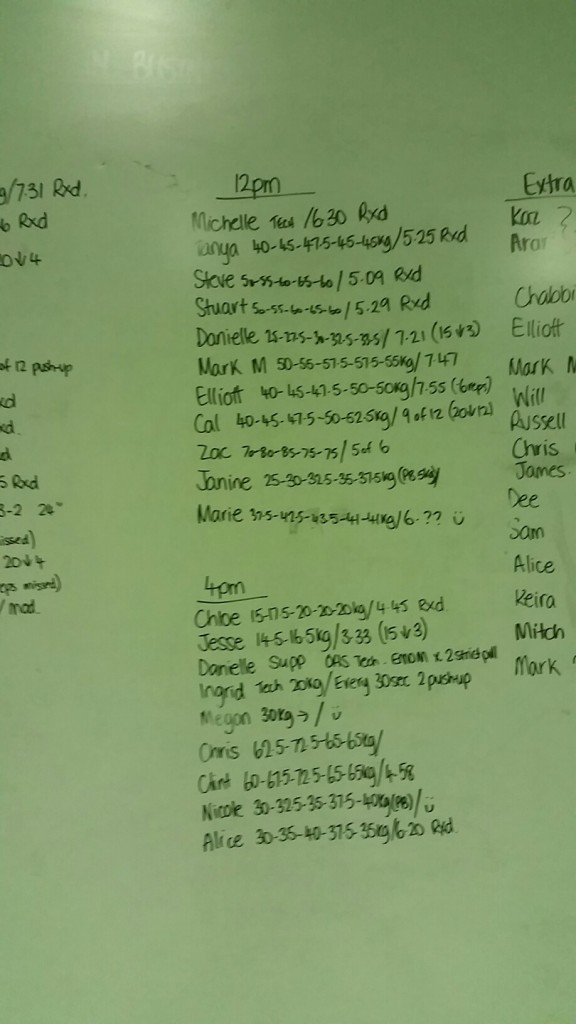 g/7.31 Rxd.
Rxd
20↓4
of 12 push-up
xd
xd.
S Rxd
3-2 24"
issed)
20↓4
eps missed)
/ mod.
12pm
Michelle Tech /6.30 Rxd
Tanya 40-45-47.5-45-45kg/5.25 Rxd
Steve 50-55-60-65-60/5.09 Rxd
Stuart 50-55-60-65-60/5.29 Rxd
Danielle 25-27.5-30-32.5-33.5/ 7.21 (15↓3)
Mark M 50-55-57.5-57.5-55kg/7.47
Elliott 40-45-47.5-50-50kg/7.55 (-6reps)
Cal 40-45-47.5-50-52.5kg/9 of 12 (20↓12)
Zac 70-80-85-75-75/5 of 6
Janine 25-30-32.5-35-37.5kg (PB 5kg)/
Marie 37.5-42.5-43.5-41-41kg/6.?? ü
4pm
Chloe 15-17.5-20-20-20kg/4.45 Rxd
Jesse 14.5-16.5kg/3.33 (15↓3)
Danielle Supp OAS Tech. EMOM x 2 strict pull
Ingrid Tech 20kg/Every 30sec 2 push-up
Megan 30kg→/ ü
Chris 62.5-72.5-65-65kg/
Clint 60-67.5-72.5-65-65kg/4.58
Nicole 30-32.5-35-37.5-40kg(PB)/ü
Alice 30-35-40-37.5-35kg/6.20 Rxd.
Extra
Kaz ?
Chabbi
Elliott
Mark M
Will
Russell
Chris (
James.
Dee
Sam
Alice
Keira
Mitch
Mark